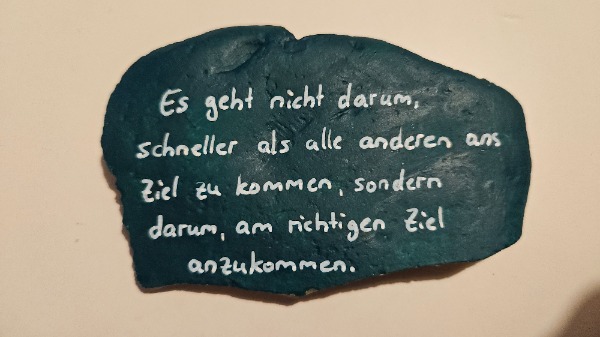 Es geht nicht darum,
schneller als alle anderen ans
Ziel zu kommen, sondern
darum, am richtigen Ziel
anzukommen.